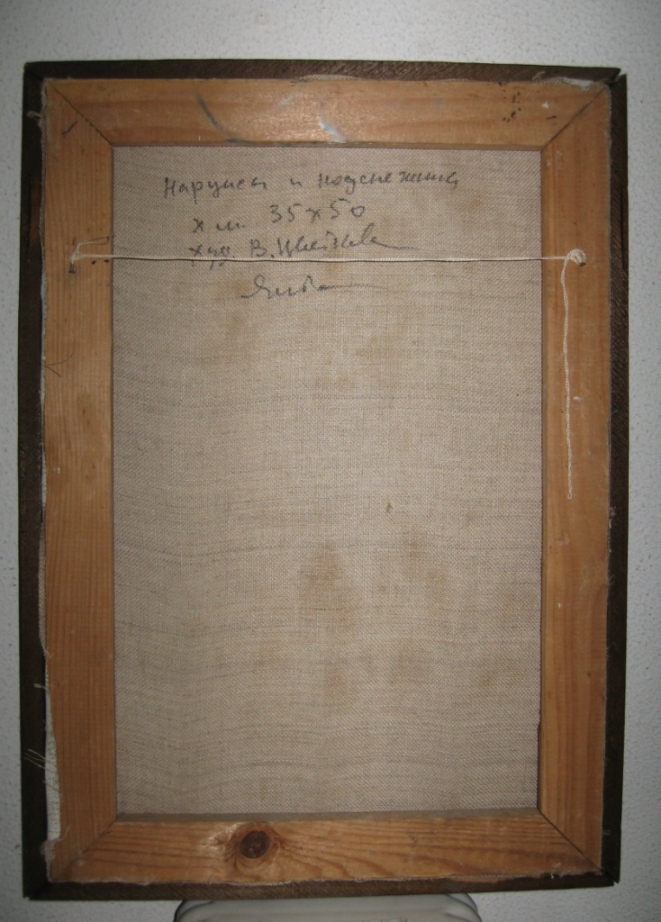 Нарцисы и подснежники
х м. 35х50
худ. В. Цветкова
Ялта